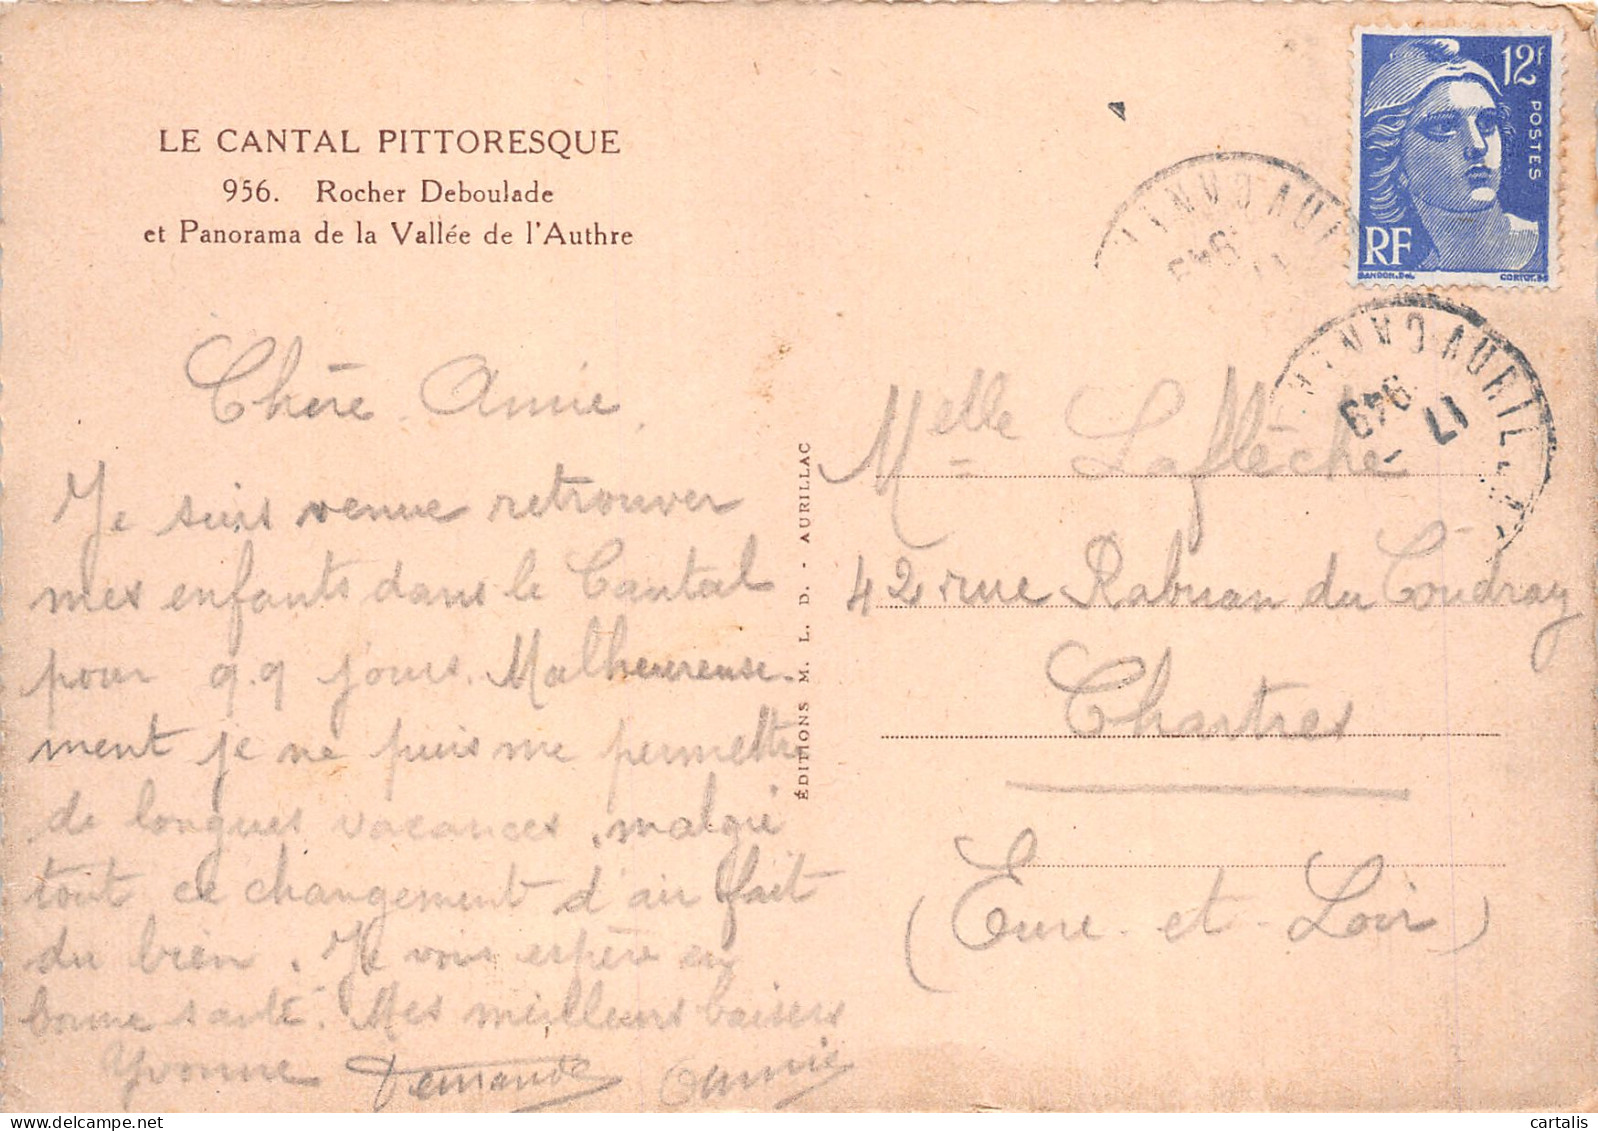 LE CANTAL PITTORESQUE
956. Rocher Deboulade
et Panorama de la Vallée de l'Authre
Chère Amie,
Je suis venue retrouver
mes enfants dans le Cantal
pour q.q jours. Malheureuse-
ment je ne puis me permettre
de longues vacances, malgré
tout ce changement d'air fait
du bien. Je vous espère en
bonne santé. Mes meilleurs baisers
Yvonne
ÉDITIONS M. L. D. - AURILLAC
12F
POSTES
RF
GANDON.Del.
CORTOT.SC
AURILLAC CANTAL
17
1949
Melle Laflèche
42 rue Rabuan du Coudray
Chartres
(Eure-et-Loir)
cartalis
delcampe.net